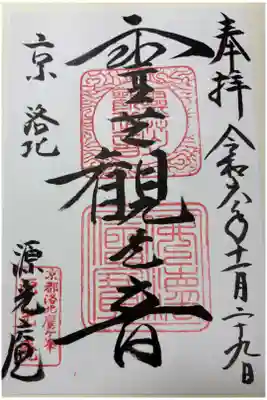 奉拝 令和六年十一月二十九日
靈芝觀世音
京 洛北
源光庵
京都洛北鷹ヶ峯